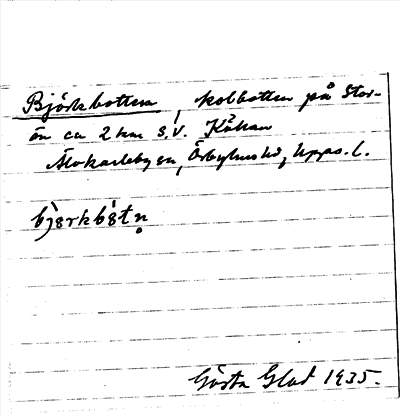 Björkbotten, kolbotten på Stor-
ön ca 2 km S.V. Kåkan
Älvkarleby sn, Örbyhus hd, Upps. l.
bjᴂrkbǫ̀tn̥
Gösta Glad 1935.